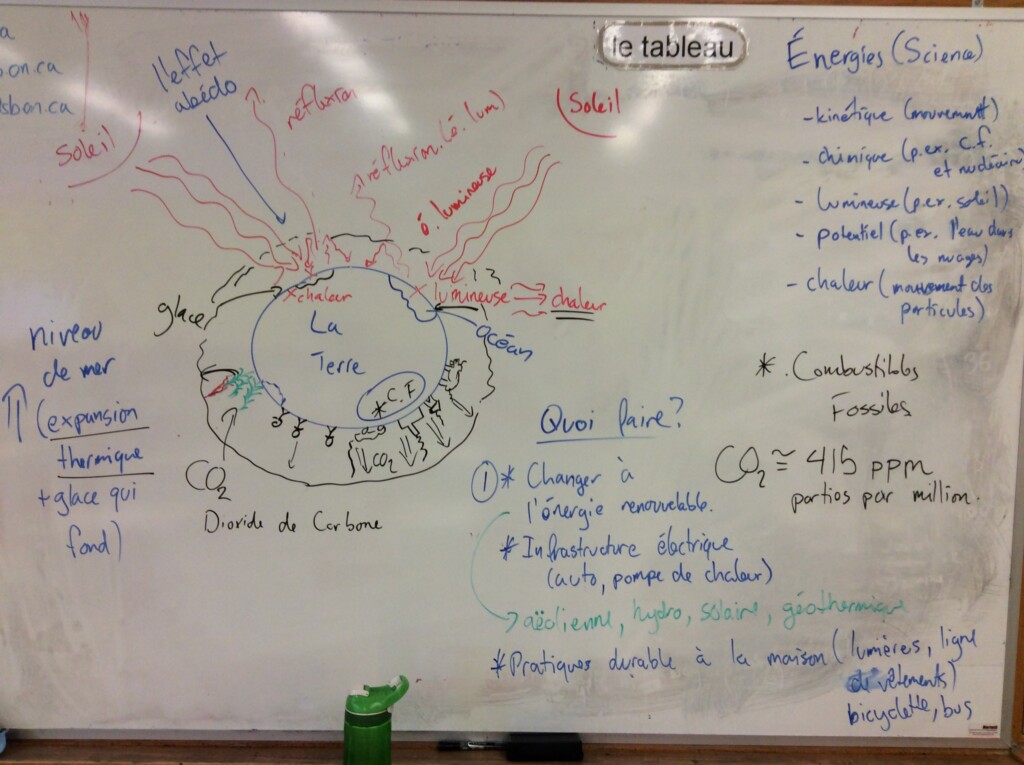 a
on.ca
sbon.ca
Soleil
l'effet
abédo
réflexion
réflexion (é. lum)
é. lumineuse
Soleil
le tableau
Énergies (Science)
- kinétique (mouvement)
- chimique (p.ex. C.F.
et nucléaire)
- lumineuse (p.ex. soleil)
- potentiel (p.ex. l'eau dans
les nuages)
- chaleur (mouvement des
particules)
* Combustibles
Fossiles
CO2 ≅ 415 ppm
parties par million.
glace
x chaleur
x lumineuse
chaleur
océan
La
Terre
* C.F
CO2
CO2
Dioxide de Carbone
niveau
de mer
(expansion
thermique
+ glace qui
fond)
Quoi faire?
① * Changer à
l'énergie renouvelable.
* Infrastructure électrique
(auto, pompe de chaleur)
aëolienne, hydro, solaire, géothermique
* Pratiques durable à la maison (lumières, ligne
de vêtements)
bicyclette, bus